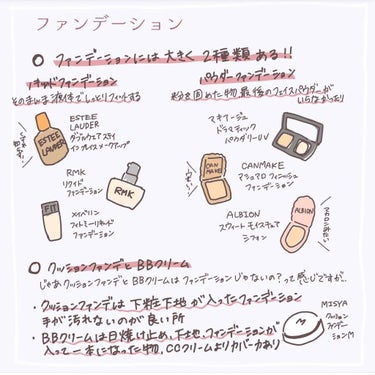 ファンデーション
○ ファンデーションには大きく2種類ある!!
リキッドファンデーション
そのまんま液体でしっとりフィットする
パウダーファンデーション
粉を固めた物 最後のフェイスパウダーが
いらなかったり
ESTEE
LAUDER
ダブルウェア ステイ
イン プレイス メークアップ
ESTEE
LAUDER
RMK
リクイド
ファンデーション
RMK
FIT
メイベリン
フィットミー リキッド
ファンデーション
マキアージュ
ドラマティック
パウダリーUV
CANMAKE
マシュマロ フィニッシュ
ファンデーション
CAN
MAKE
ALBION
スウィート モイスチュア
シフォン
ALBION
○ クッションファンデとBBクリーム
じゃあクッションファンデとBBクリームはファンデーションじゃないの?って感じですが、
・クッションファンデは下粧下地が入ったファンデーション
手が汚れないのが良い所
・BBクリームは日焼け止め、下地、ファンデーションが
入って一本になった物、CCクリームよりカバー力あり
MISYA
クッション
ファンデー
ションM